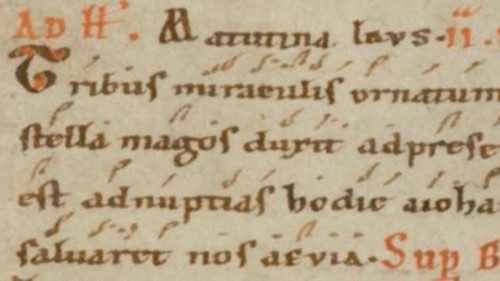 AD H. Matutina laus. II.
Tribus miraculis ornatum
stella magos duxit ad prese
est ad nuptias hodie a ioha
saluaret nos aevia. Sup B